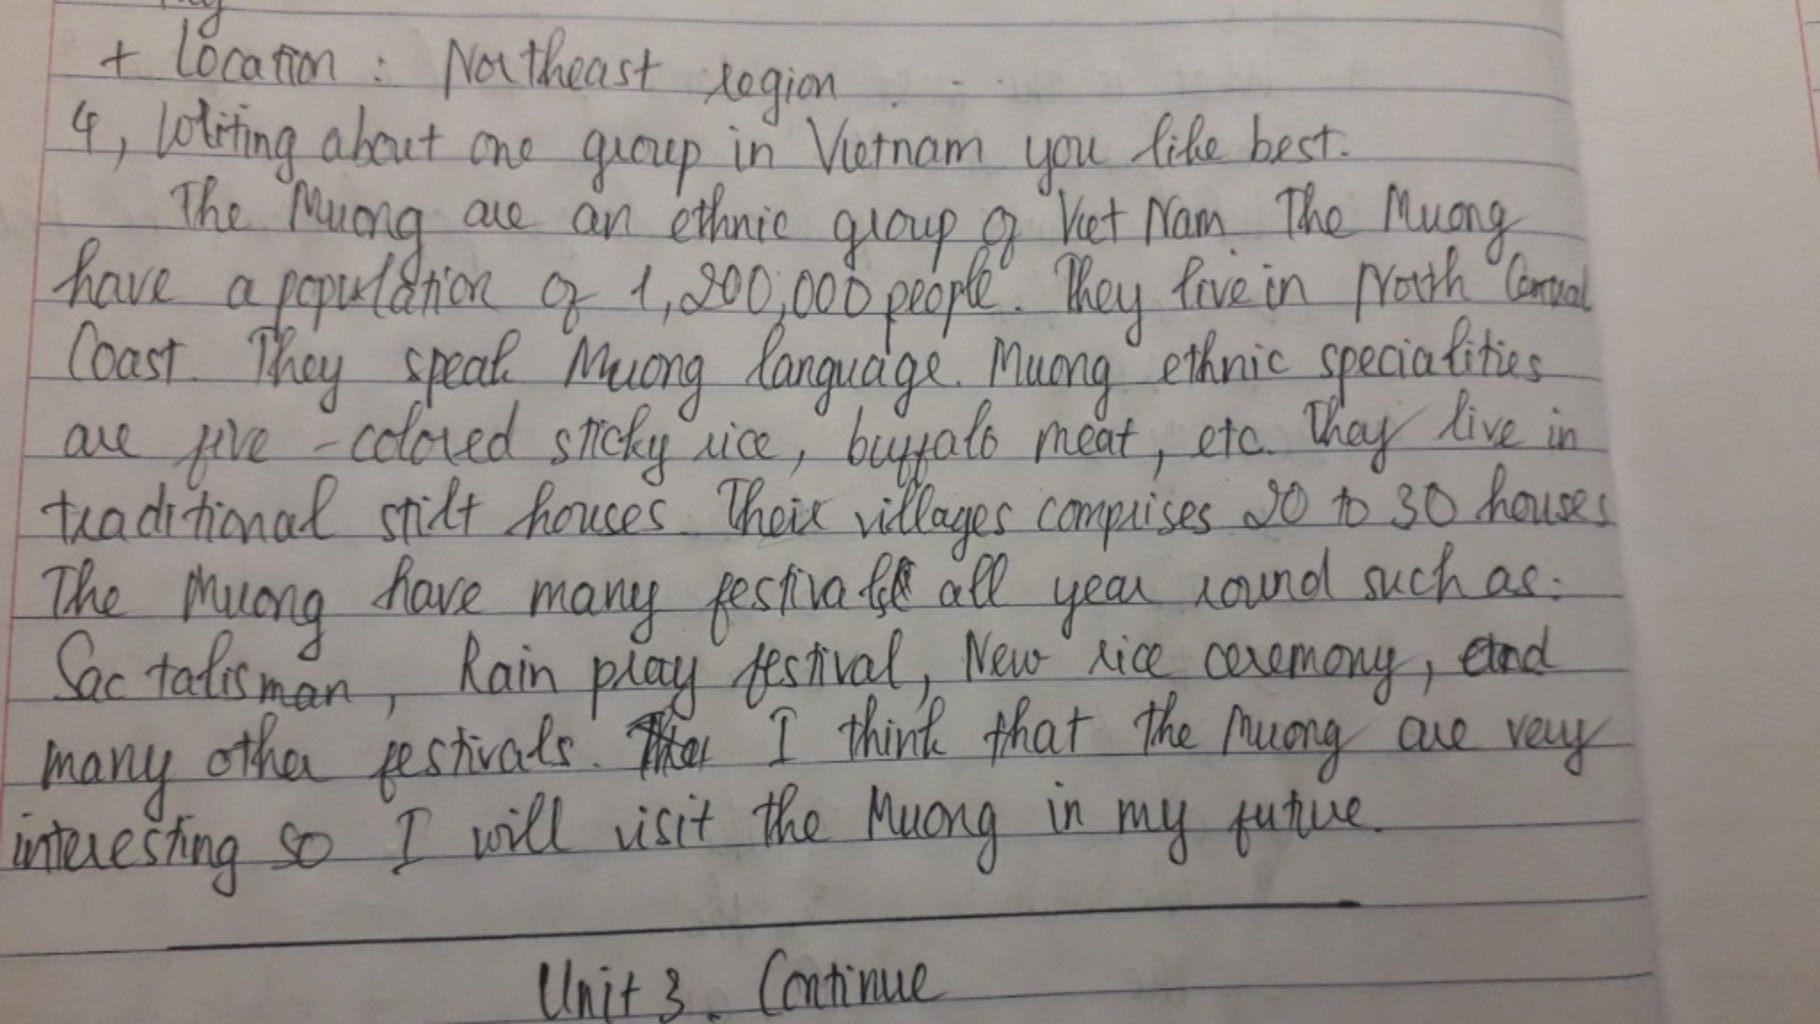 + Location : Northeast region
4, Writing about one group in Vietnam you like best.
The Muong are an ethnic group of Viet Nam. The Muong
have a population of 1,200,000 people. They live in North Central
Coast. They speak Muong language. Muong ethnic specialities
are five-colored sticky rice, buffalo meat, etc. They live in
traditional stilt houses. Their villages comprises 20 to 30 houses
The Muong have many festivals all year round such as:
Sac talisman, Rain pray festival, New rice ceremony, and
many other festivals. I think that the Muong are very
interesting so I will visit the Muong in my future.
Unit 3. Continue